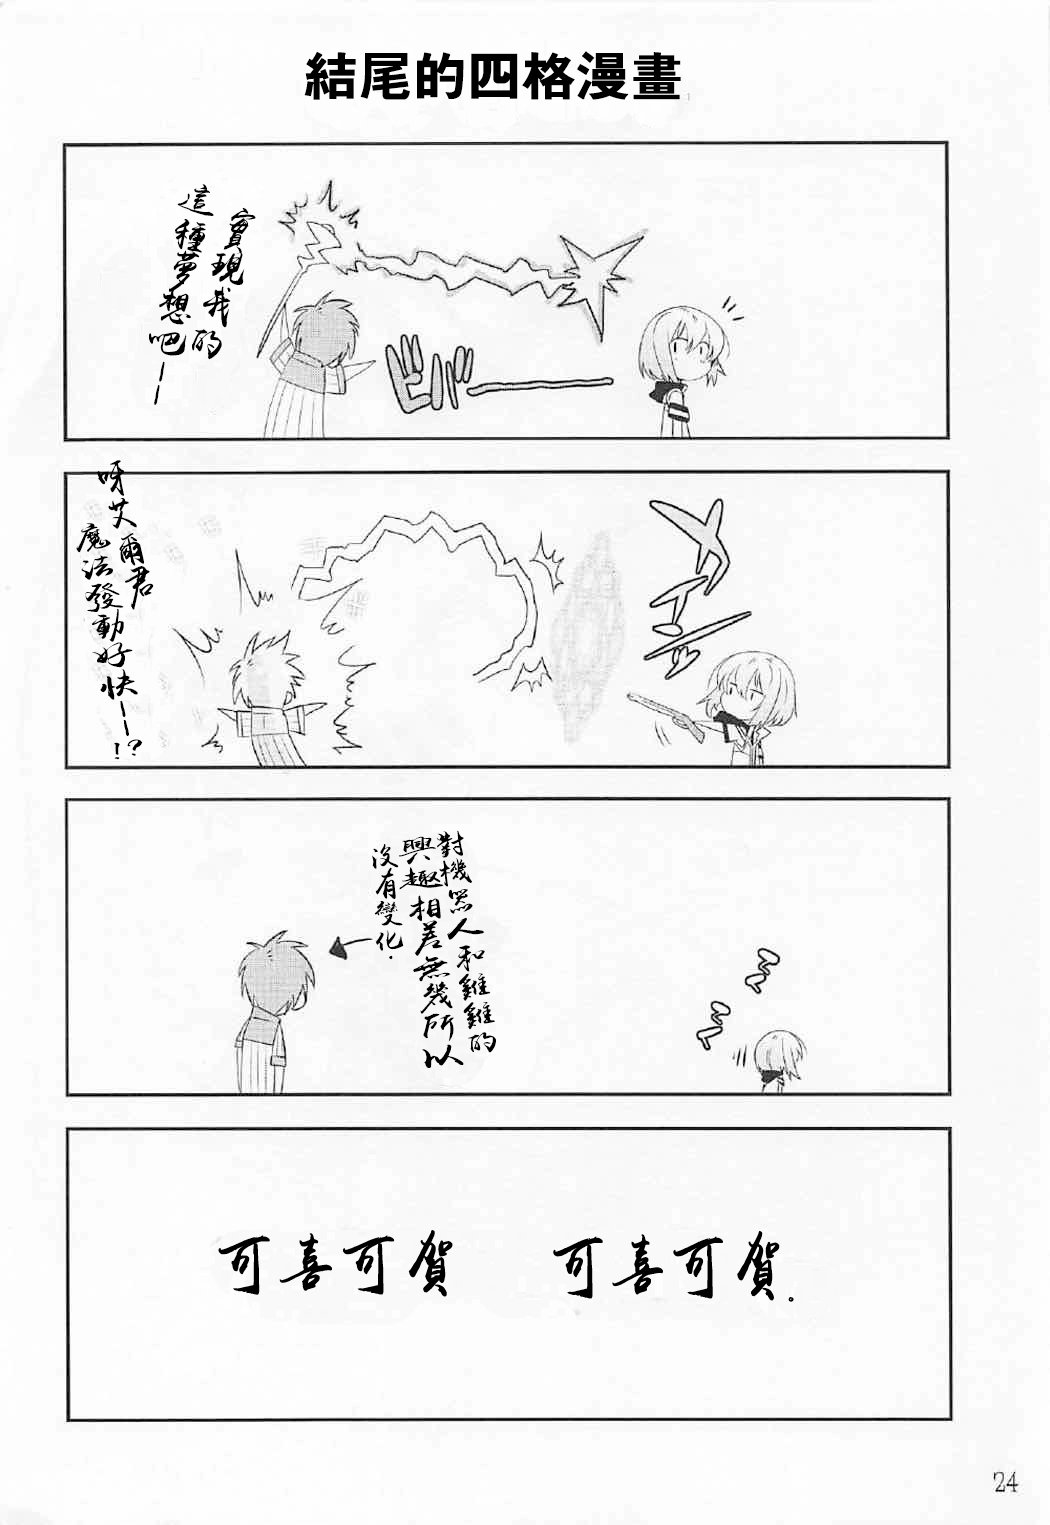 結尾的四格漫畫
實現我的
這種夢想吧——
ビバーー
呀艾爾君
魔法發動好快——!?
メメタァ
對機器人和雞雞的
興趣相差無幾所以
沒有變化.
可喜可賀 可喜可賀.
24